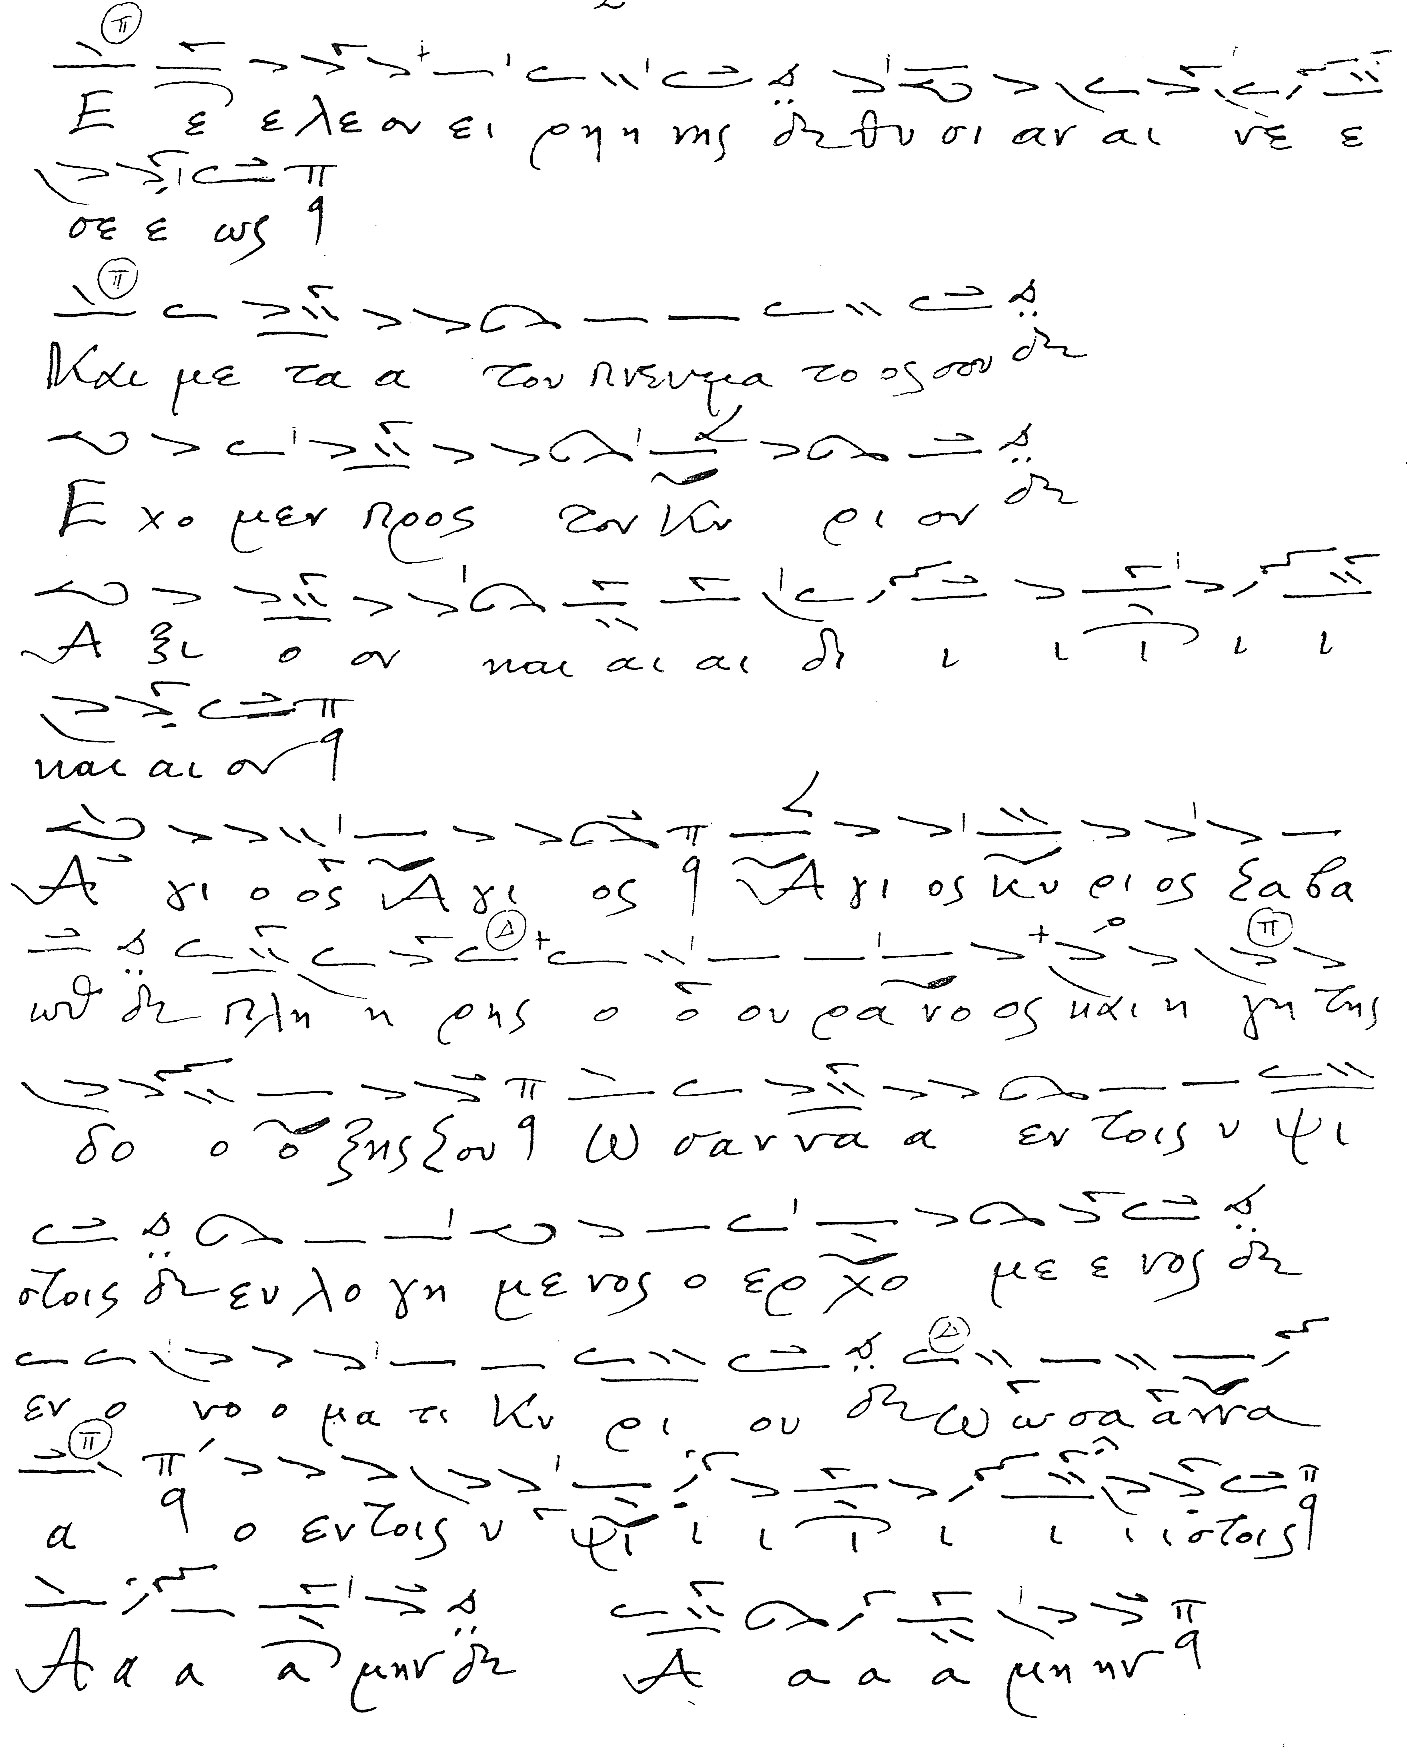 Ε ε ε λε ον ει ρη η νης θυ σι αν αι νε ε
σε ε ως
Και με τα α του πνευμα το ος σου
Ε χο μεν προς τον Κυ ρι ον
Α ξι ο ον και αι αι δι ι ι ι ι ι
και αι ον
Α γι ο ος Α γι ος Α γι ος κυ ρι ος Σα βα
ωθ πλη η ρης ο ο ου ρα νο ος και η γη της
δο ο ο ξης σου Ω σαν να α εν τοις υ ψι
στοις ευ λο γη με νος ο ερ χο με ε νος
εν ο νο ο μα τι Κυ ρι ου ω ω σα α ννα
α ο εν τοις υ ψι ι ι ι ι ι ι ι στοις
Α α α α μην Α α α α μη ην